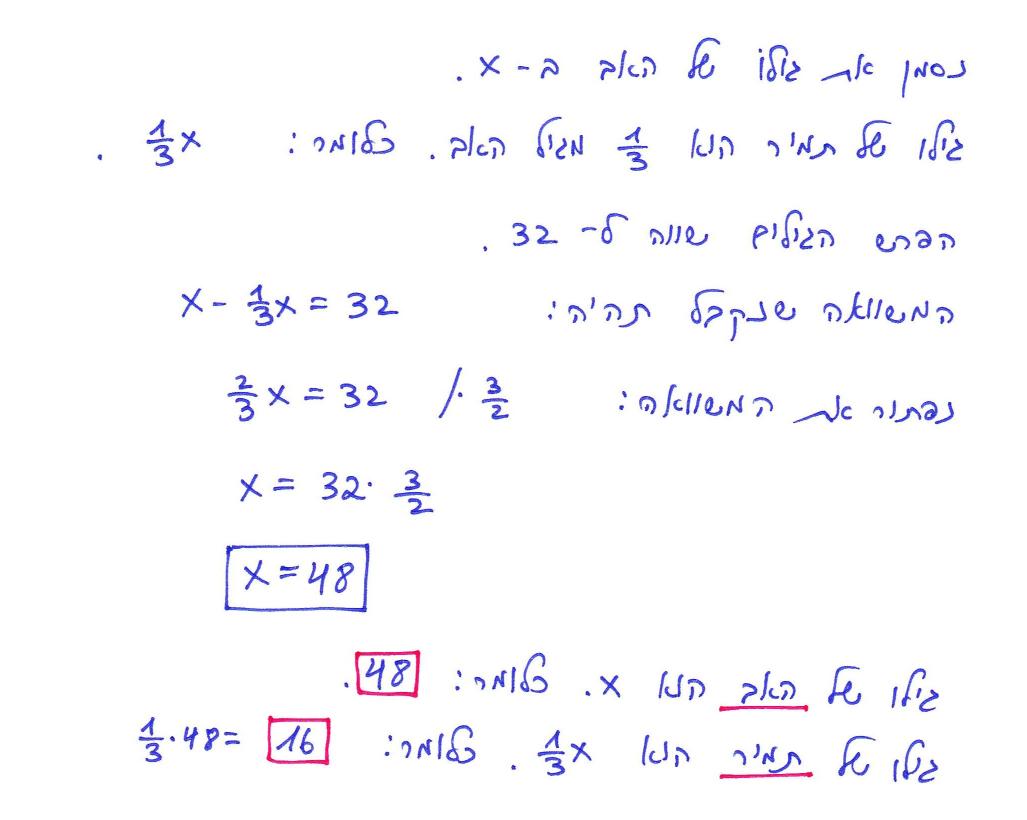 נסמן את גילו של האב ב- x .
גילו של תמיר הוא 1/3 מגיל האב. כלומר: 1/3 x .
הפרש הגילים שווה ל- 32 .
המשוואה שנקבל תהיה: x - 1/3 x = 32
נפתור את המשוואה: 2/3 x = 32 /· 3/2
x = 32 · 3/2
x = 48
גילו של האב הוא x. כלומר: 48.
גילו של תמיר הוא 1/3 x . כלומר: 1/3 · 48 = 16